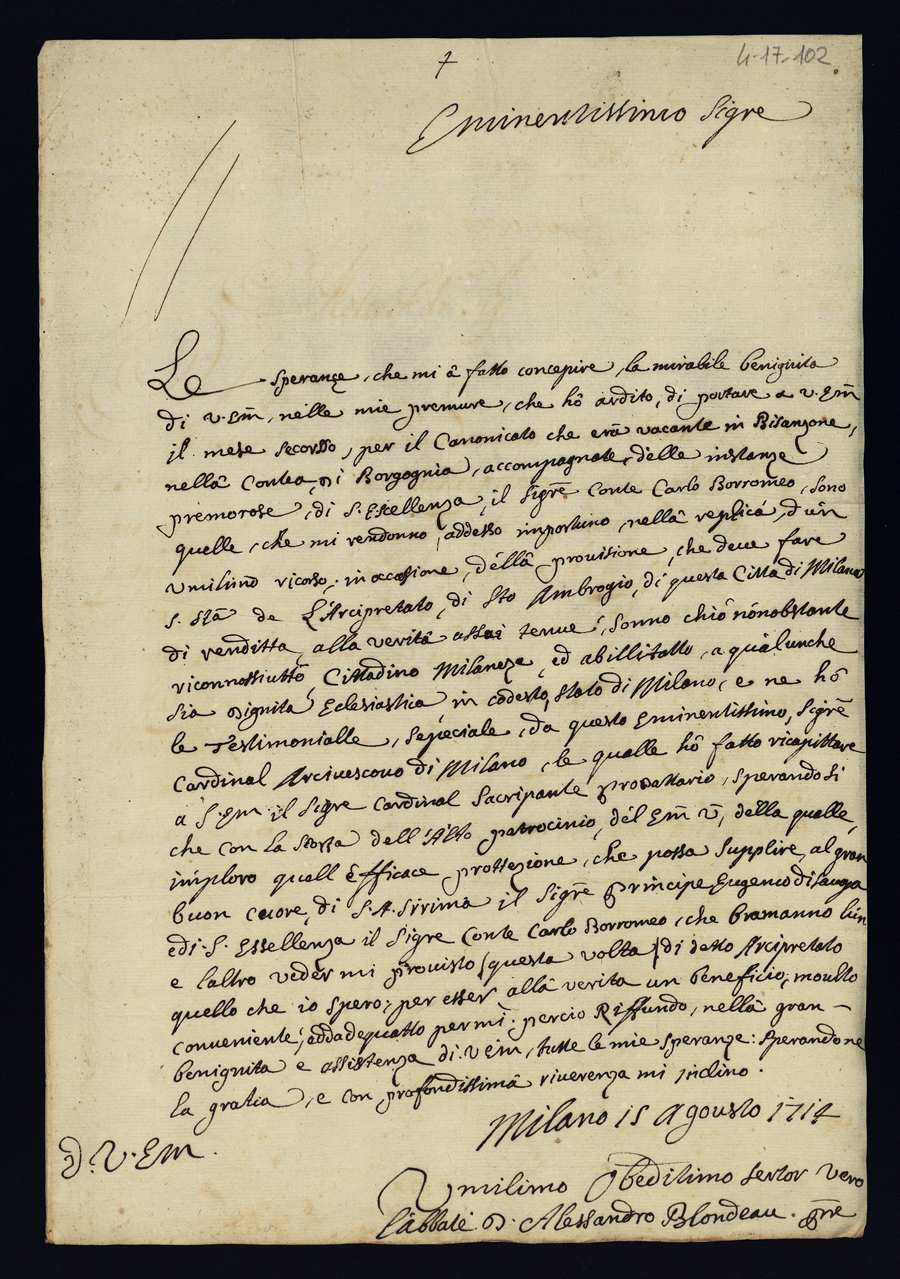 4-17-102
+
Eminentissimo Sigre
Le Speranze, che mi â fatto concepire, la mirabile benignita
di V. Em̃, nelle mie premure, che hô ardito, di portare a V. Em̃
il mese Secorsso, per il Canonicato che erã vacante in Bisanzone,
nellâ Contea, di Borgognia, accompagnate, delle instanze
premorose, di S. Escellenza, il Sigrẽ Conte Carlo Borromeo, sono
quelle, che mi rendonno, addesso importuno, nellâ replica, d'ũn
umilimõ ricorso, in occasione, dellâ provisione, che deve fare
S. Stã de L'Arcipretato, di Sto Ambrogio, di questa Città di Milano
di renditta, alla veritâ assai tenue, sonno chiô nonobstante
riconnossiutto, Cittadino Milanese, ed abillitatto, a qualunche
sia dignita Eclesiastica, in codesto, stato di Milano, e ne hô
le Testimonialle, Sepeciale, da questo Eminentissimo, Sigrẽ
Cardinal Arcivescovo di Milano, le qualle hô fatto ricapittare
a S. Em il Sigre Cardinal Sacripante prodattario, sperando si
che con la scorta dell'Alto patrocinio, del Em̃ V̄, della quelle,
imploro quell Efficace prottezione, che possa Supplire, al gran
buon cuore, di S. A. Sirima il Sigrẽ principe Eugenio di Savoya
e di S. Essellenza il Sigre Conte Carlo Borromeo, che bramanno l'ũn
e l'altro veder mi provisto (questa volta) di detto Arcipretato
quello che io spero, per esser allâ verita un beneficio, moulto
conveniente, addadequatto per mi; percio Riffundo, nellâ gran
benignita e assistenza di V Em, tutte le mie speranze: Sperandone
la gratia, e con profondissimâ riverenza mi inclino.
Milano 15 Agousto 1714
D. V. Em.
Umilimo Obeditimo Servor Vero
L'abbate D. Alessandro Blondeau. pre